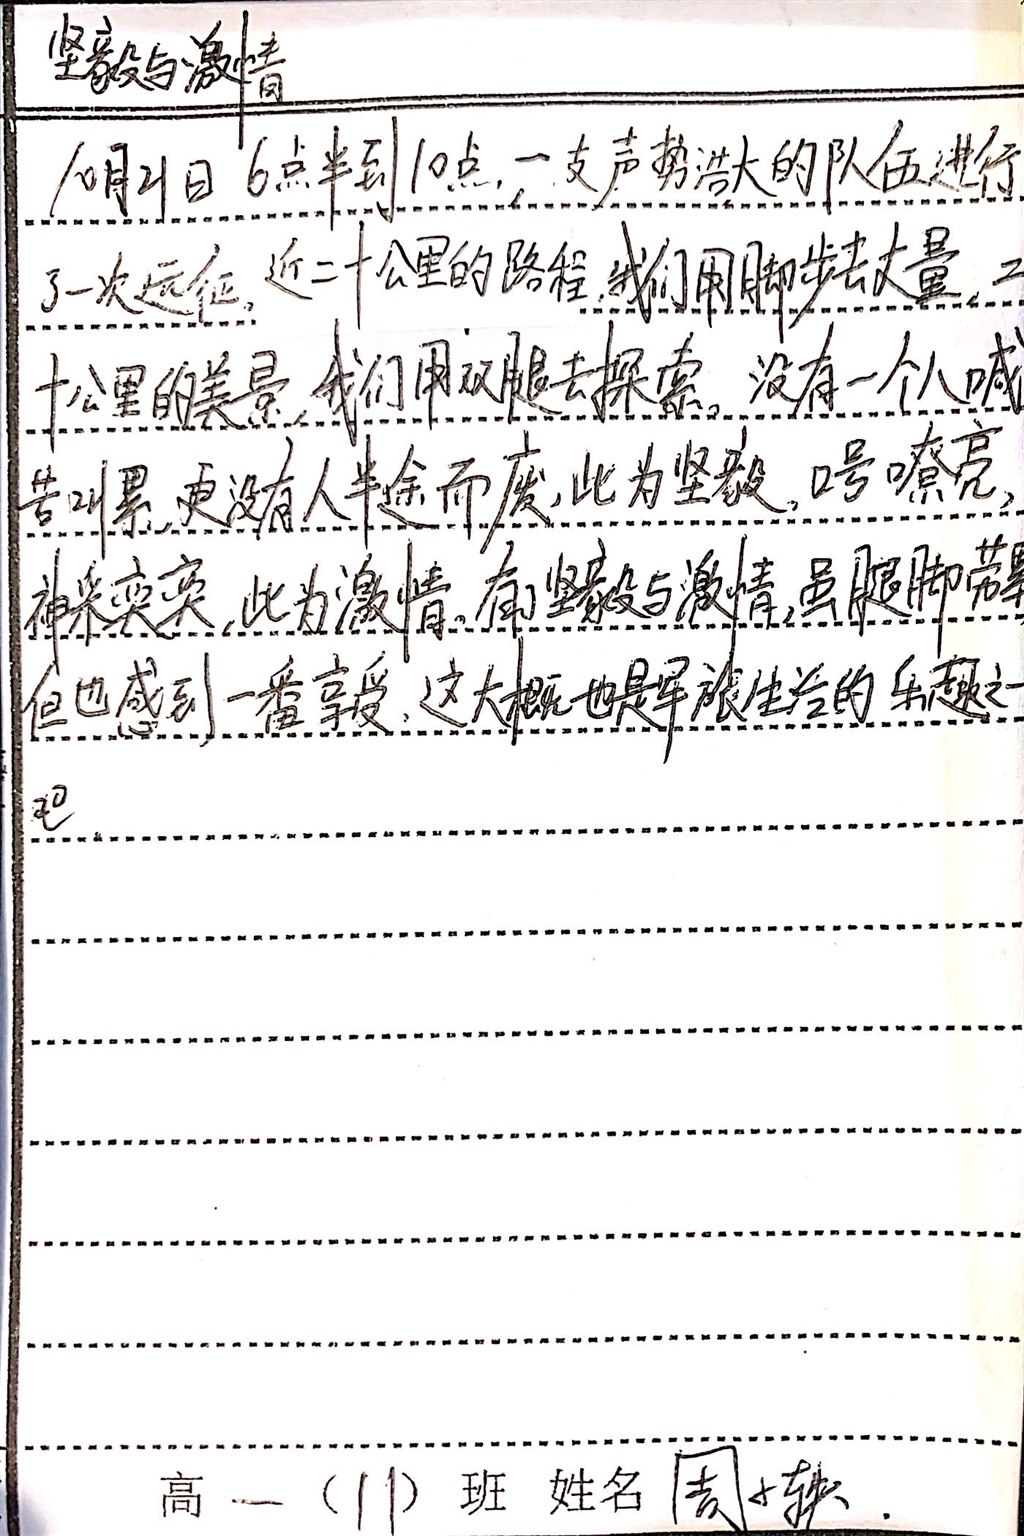 坚毅与激情
10月21日 6点半到10点，一支声势浩大的队伍进行
了一次远征，近二十公里的路程，我们用脚步去丈量，二
十公里的美景，我们用双腿去探索。没有一个人喊
苦叫累，更没有人半途而废，此为坚毅。口号嘹亮，
神采奕奕，此为激情。有了坚毅与激情，虽腿脚带累
但也感到一番享受，这大概也是军旅生活的乐趣之一
吧.
高一（11）班 姓名 周